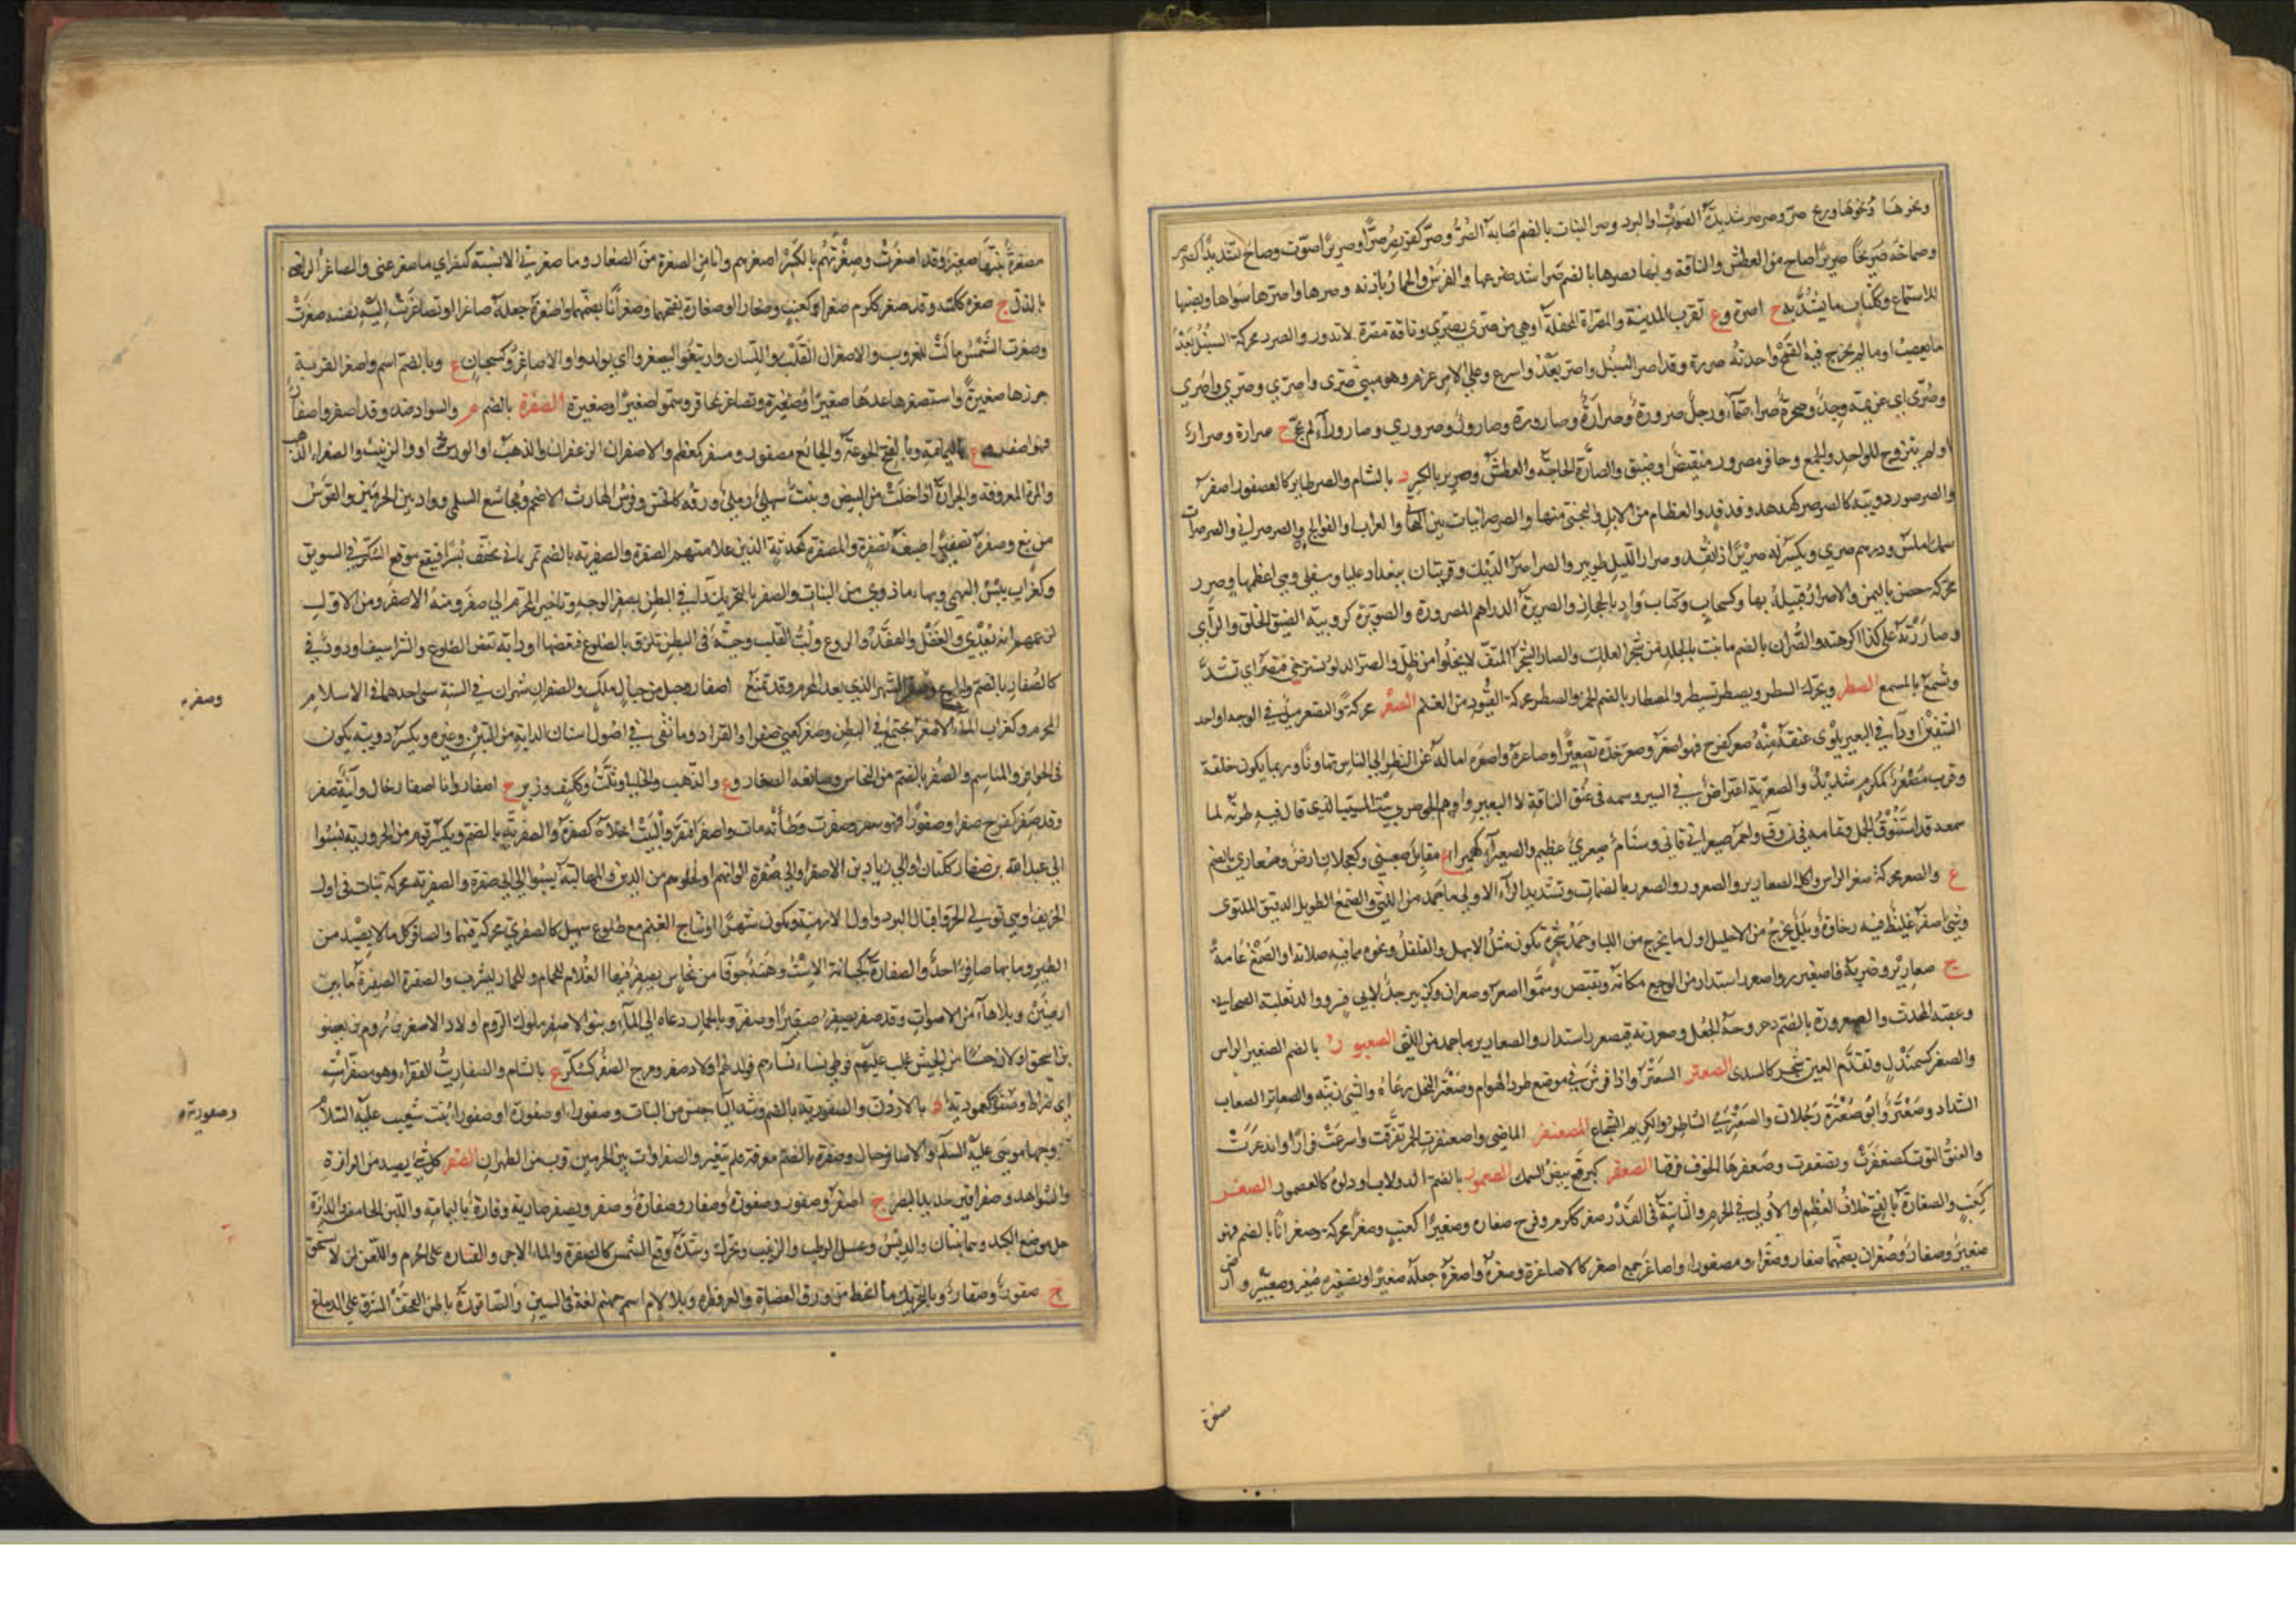 ونخرها ونحوها وريح صر وصرصر شديدة الصوت او البرد وصر النبات بالضم اصابه الصر وصر كفر يصر صرا وصريرا صوت وصاح شديدا كصرصر
وصماخه صريرا صاح من العطش والناقة وبها يصرها بالضم صرا شد ضرعها والفرس والحمار باذنه وصرها واصرها سواها ونصبها
للاستماع وككتاب ما يشد به ج اصرة وع تقرب المدينة والمصراة المحفلة او هي من صرى يصري وناقة مصرة لا تدر والصرر محركة السنبل بعد
ما يقصب او ما لم يخرج فيه القمح واحدته صررة وقد اصر السنبل واصر يعدو اسرع وعلى الامر عزم وهو مني صرى واصرى وصرى واصرى
وصرى اي عزيمة وجد وصخرة صراء صماء ورجل صرورة وصرارة وصارورة وصارور وصروري وصاروراء لم يحج ج صرارة وصرار
او لم يتزوج للواحد والجمع وحافر مصرور متقبض او ضيق والصارة الحاجة والعطش وصرير بالكسر د بالشام والصر طاير كالعصفور اصفر
والصرصور دويبة كالصرصر كهدهد وفدفد والعظام من الابل والبختي منها والصرصرانيات بين البخاتي والعراب او الفوالج والصرصراني والصرصران
سمك املس ودرهم صري ويكسر له صرير اذا نقد وصرار الليل طوير والصراصرة الديك وقريتان ببغداد عليا وسفلى وهي اعظمها وصرر
محركة حصن باليمن والاصرار قبيلة بها وكسحاب وككتاب واد بالحجاز والصريرة الدراهم المصرورة والصويرة كدويبة الضيق الخلق والراي
وصاررته على كذا اكرهته والصران بالضم ما نبت بالجلد من شجر العلك والصار الشجر الملتف لا يخلو من ظل والصر الدلو تسترخي فتصر اي تشد
وتسمع بالمسمع الصطر ويحرك السطر ويصطر تسيطر والمصطار بالضم الخمر والصطر محركة العتود من الغنم الصعر محركة والتصعر ميل في الوجه او احد
الشفين او داء في البعير يلوي عنقه منه صعر كفرح فهو اصعر وصعر خده تصعيرا وصاعره واصعره اماله عن النظر الى الناس تهاونا وربما يكون خلقة
وقرب مصعر كمكرم شديد والصعرية اعتراض في السير وسمة في عنق الناقة لا البعير واوهم الجوهري بيت المسيب الذي قال فيه طرفة لما
سمعه قد استنوق الجمل ومقامه في ن و ق واحمر صيعري قاني وسنام صيعري عظيم والصعيراء كحميراء ع مقابل صعبي وكيعملات ارض وصعارى بالضم
ع والصعر محركة صغر الراس واكل الصعارير والصعرور والصعرر بالضمات وتشديد الراء الاولى ما جمد من اللثى والصمغ الطويل الدقيق الملتوي
وشيء اصفر غليظ فيه رخاوة وبلل يخرج من الاحليل اول ما يخرج من اللبا وحمل شجرة تكون مثل الابهل والفلفل ونحوه مما فيه صلابة او الصمغ عامة
ج صعارير وضربه فاصعنرر واصعرر استدار من الوجع مكانه وتقبض وسموا اصعر وصعران وكزبير جد لابي ذر ووالد ثعلبة الصحابي
وعقبة المحدث والصعرورة بالضم دحروجة الجعل وصعررته فتصعرر استدار والصعارير ما جمد من اللثى الصعبور بالضم الصغير الراس
والصغر كسمندل وتقدم العين شجر كالسدر الصعتر السعتر واذا فرش في موضع طرد الهوام وصعتر النحل رعاه والشيء زينه والصعاتر الصعاب
الشداد وصعتر وابو صعترة رجلان والصعتري الشاطر والكريم الشجاع المصعنفر الماضي واصعنفرت الحمر تفرقت واسرعت فرارا وابذعرت
والعنق التوت كصعفرت وتصعفرت وصعفرها الخوف فرقها الصعقر كبرقع بيض السمك الصعمور بالضم الدولاب او دلوه كالعصمور الصغر
كعنب والصغارة بالفتح خلاف العظم او الاولى في الجرم والثانية في القدر صغر ككرم وفرح صغارة وصغرا كعنب وصغرا محركة وصغرانا بالضم فهو
صغير وصغار وصغران بضمهما صغار وصغراء ومصغوراء واصاغر جمع اصغر كالاصاغرة وصغره واصغره جعله صغيرا وتصغيره صغير وصغيير وارض
مصغرة
مصغرة نبتها صغير وقد اصغرت وصغرتهم بالكسر اصغرهم وانا من الصغرة من الصغار وما صغرني الا بسنة كنصر اي ما صغر عني والصاغر الراضي
بالذل ج صغرة ككتبة وقد صغر ككرم صغرا كعنب وصغارا وصغارة بفتحهما وصغرانا بضمهما واصغره جعله صاغرا وتصاغرت اليه نفسه صغرت
وصغرت الشمس مالت للغروب والاصغران القلب واللسان وارتبعوا ليصغروا اي يولدوا والاصاغر وكسحبان ع وبالضم اسم واصغر القربة
خرزها صغيرة واستصغره عده صغيرا وصغير وتصاغر تحاقر وسموا صغيرا وصغيرة الصفرة بالضم م والسواد ضد وقد اصفر واصفار
فهو اصفر وع باليمامة وبالفتح الجوعة والجائع مصفور ومصفر كمعظم والاصفران الزعفران والذهب او الورس او والزبيب والصفراء الذهب
والمرة المعروفة والجرادة اذا خلت من البيض ونبت سهلي رملي ورقه كالخس وفرس الحارث الاضجم ومجاشع السلمي وواد بين الحرمين والقوس
من نبع وصفره تصفيرا صبغه بصفرة والمصفرة كمحدثة الذين علامتهم الصفرة والصفرية بالضم تمر يماني يجفف بسرا فيقع موقع السكر في السويق
وكغراب يبس البهمى وبهاء ما ذوى من النبات والصفر بالتحريك داء في البطن يصفر الوجه وتاخير المحرم الى صفر ومنه الاصفر ومن الاول
لزعمهم انه يعدي والعقل والعقد والروع ولب القلب وحية في البطن تلزق بالضلوع فتعضها او دابة تعض الضلوع والشراسيف او دود في
كالصفار بالضم والجوع وصفر الشهر الذي بعد المحرم وقد يمنع اصفار وجبل من جبال ملل والصفران شهران في السنة سمي احدهما في الاسلام
المحرم وكغراب الماء الاصفر يجتمع في البطن وصفر كعني صفرا والقراد وما بقي في اصول اسنان الدابة من التبن وغيره ويكسر ودويبة يكون
في الحوافر والمناسم والصفر بالضم من النحاس وصانعه الصفار وع والذهب والخالي ويثلث وككتف وزبر ج اصفار واناء اصفار خال وآنية صفر
وقد صفر كفرح صفرا وصفورا فهو صفر وصفرت وطابه مات واصفر افتقر والبيت اخلاه كصفره والصفرية بالضم ويكسر قوم من الحرورية نسبوا
الى عبد الله بن صفار ككتان او الى زياد بن الاصفر او الى صفرة الوانهم او لخلوهم من الدين والمهالبة نسبوا الى ابي صفرة والصفرية محركة نبات في اول
الخريف او هي تولي الحر واقبال البرد واول الازمنة وتكون شهرا او نتاج الغنم مع طلوع سهيل كالصفري محركة فيهما والصافر كل ما لا يصيد من
الطير وما بها صافر احد والصفارة كجبانة الاست وهنة جوفاء من نحاس يصفر فيها الغلام للحمام وللحمار ليشرب والصفرة الصفيرة ما بين
ارضين وبلا هاء من الاصوات وقد صفر يصفر صفيرا وصفر وبالحمار دعاه الى الماء وبنو الاصفر ملوك الروم اولاد الاصفر بن روم بن يعصو
بن اسحق او لان جيشا من الحبش غلب عليهم فوطئ نساءهم فولد لهم اولاد صفر ومرج الصفر كسكر ع بالشام والصفاريت الفقراء وهو مصفر استه
اي ضراط وصفورية كعمورية د بالاردن والصفورية بالضم وشد الياء جنس من النبات وصفوراء او صفورة او صفوراء بنت شعيب عليه السلام
تزوجها موسى عليه السلام والاصافر جبال وصفرة بالضم معرفة علم للعنز والصفراوات بين الحرمين قرب مر الظهران الصقر كل شيء يصيد من البزاة
والشواهين وصقر اقين حديد البصر ج اصقر وصقور وصقورة وصقار وصقارة وصقر وبصقر صارية وقارة باليمامة واللبن الحامض والدائرة
خلف موضع لبد وهما ثنتان والدبس وعسل الرطب والزبيب ويحرك وشدة وقع الشمس كالصقرة والماء الاجن والقيادة على الحرم واللعن لمن لا يستحق
ج صقور وصقار وبالتحريك ما انحط من ورق العضاه والعرفط وبلا لام اسم جهنم لغة في السين والصاقورة باطن القحف المشرف على الدماغ
وصفره
وصعورته